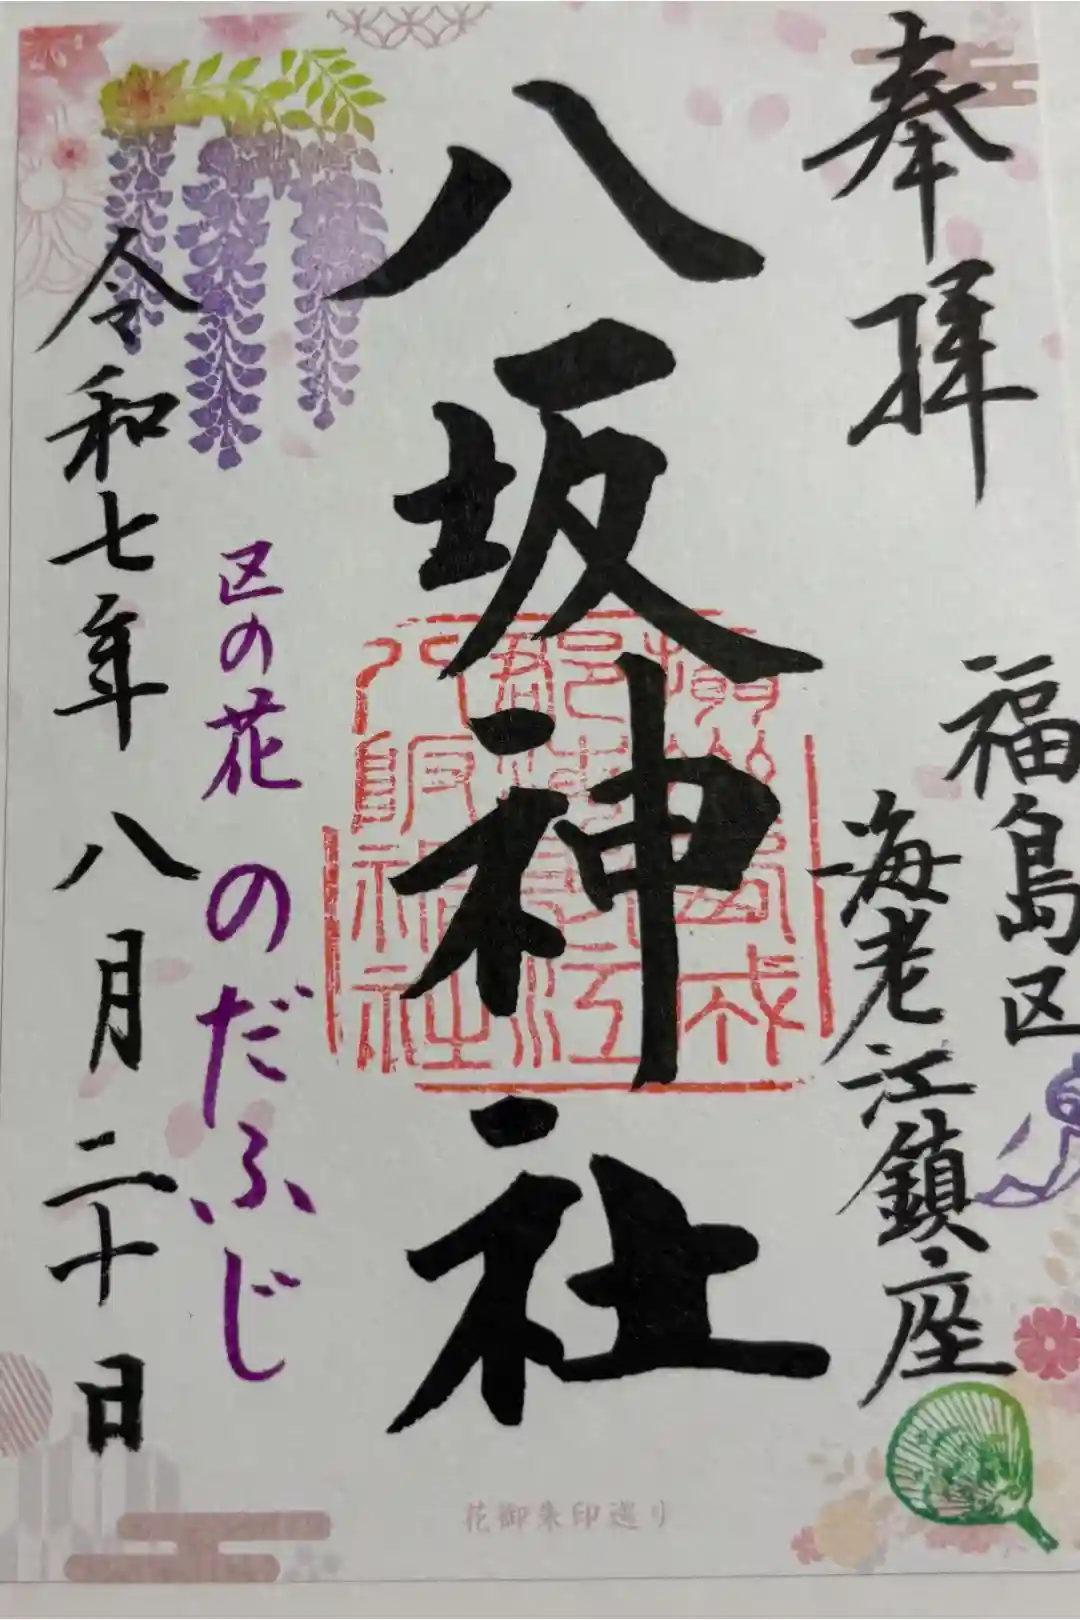 奉拝
福島区
海老江鎮座
八坂神社
区の花 のだふじ
令和七年八月二十日
花御朱印巡り